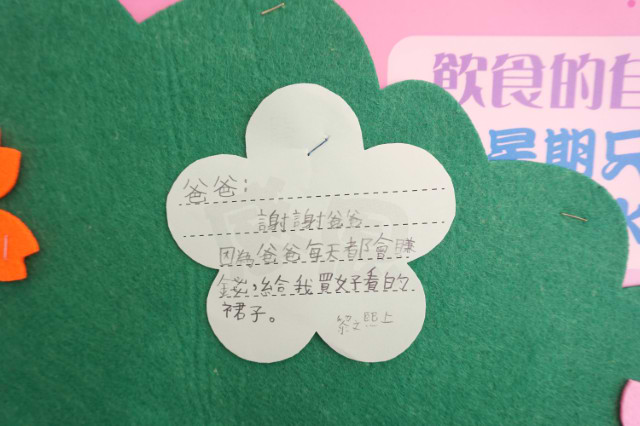 飲食的自
星期只
爸爸:
謝謝爸爸
因為爸爸每天都會賺
錢,給我買好看的
裙子。
上